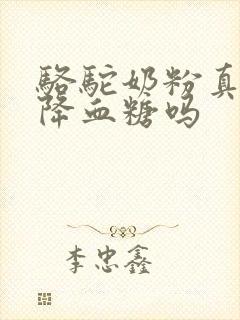 骆驼奶粉真
降血糖吗
李忠鑫